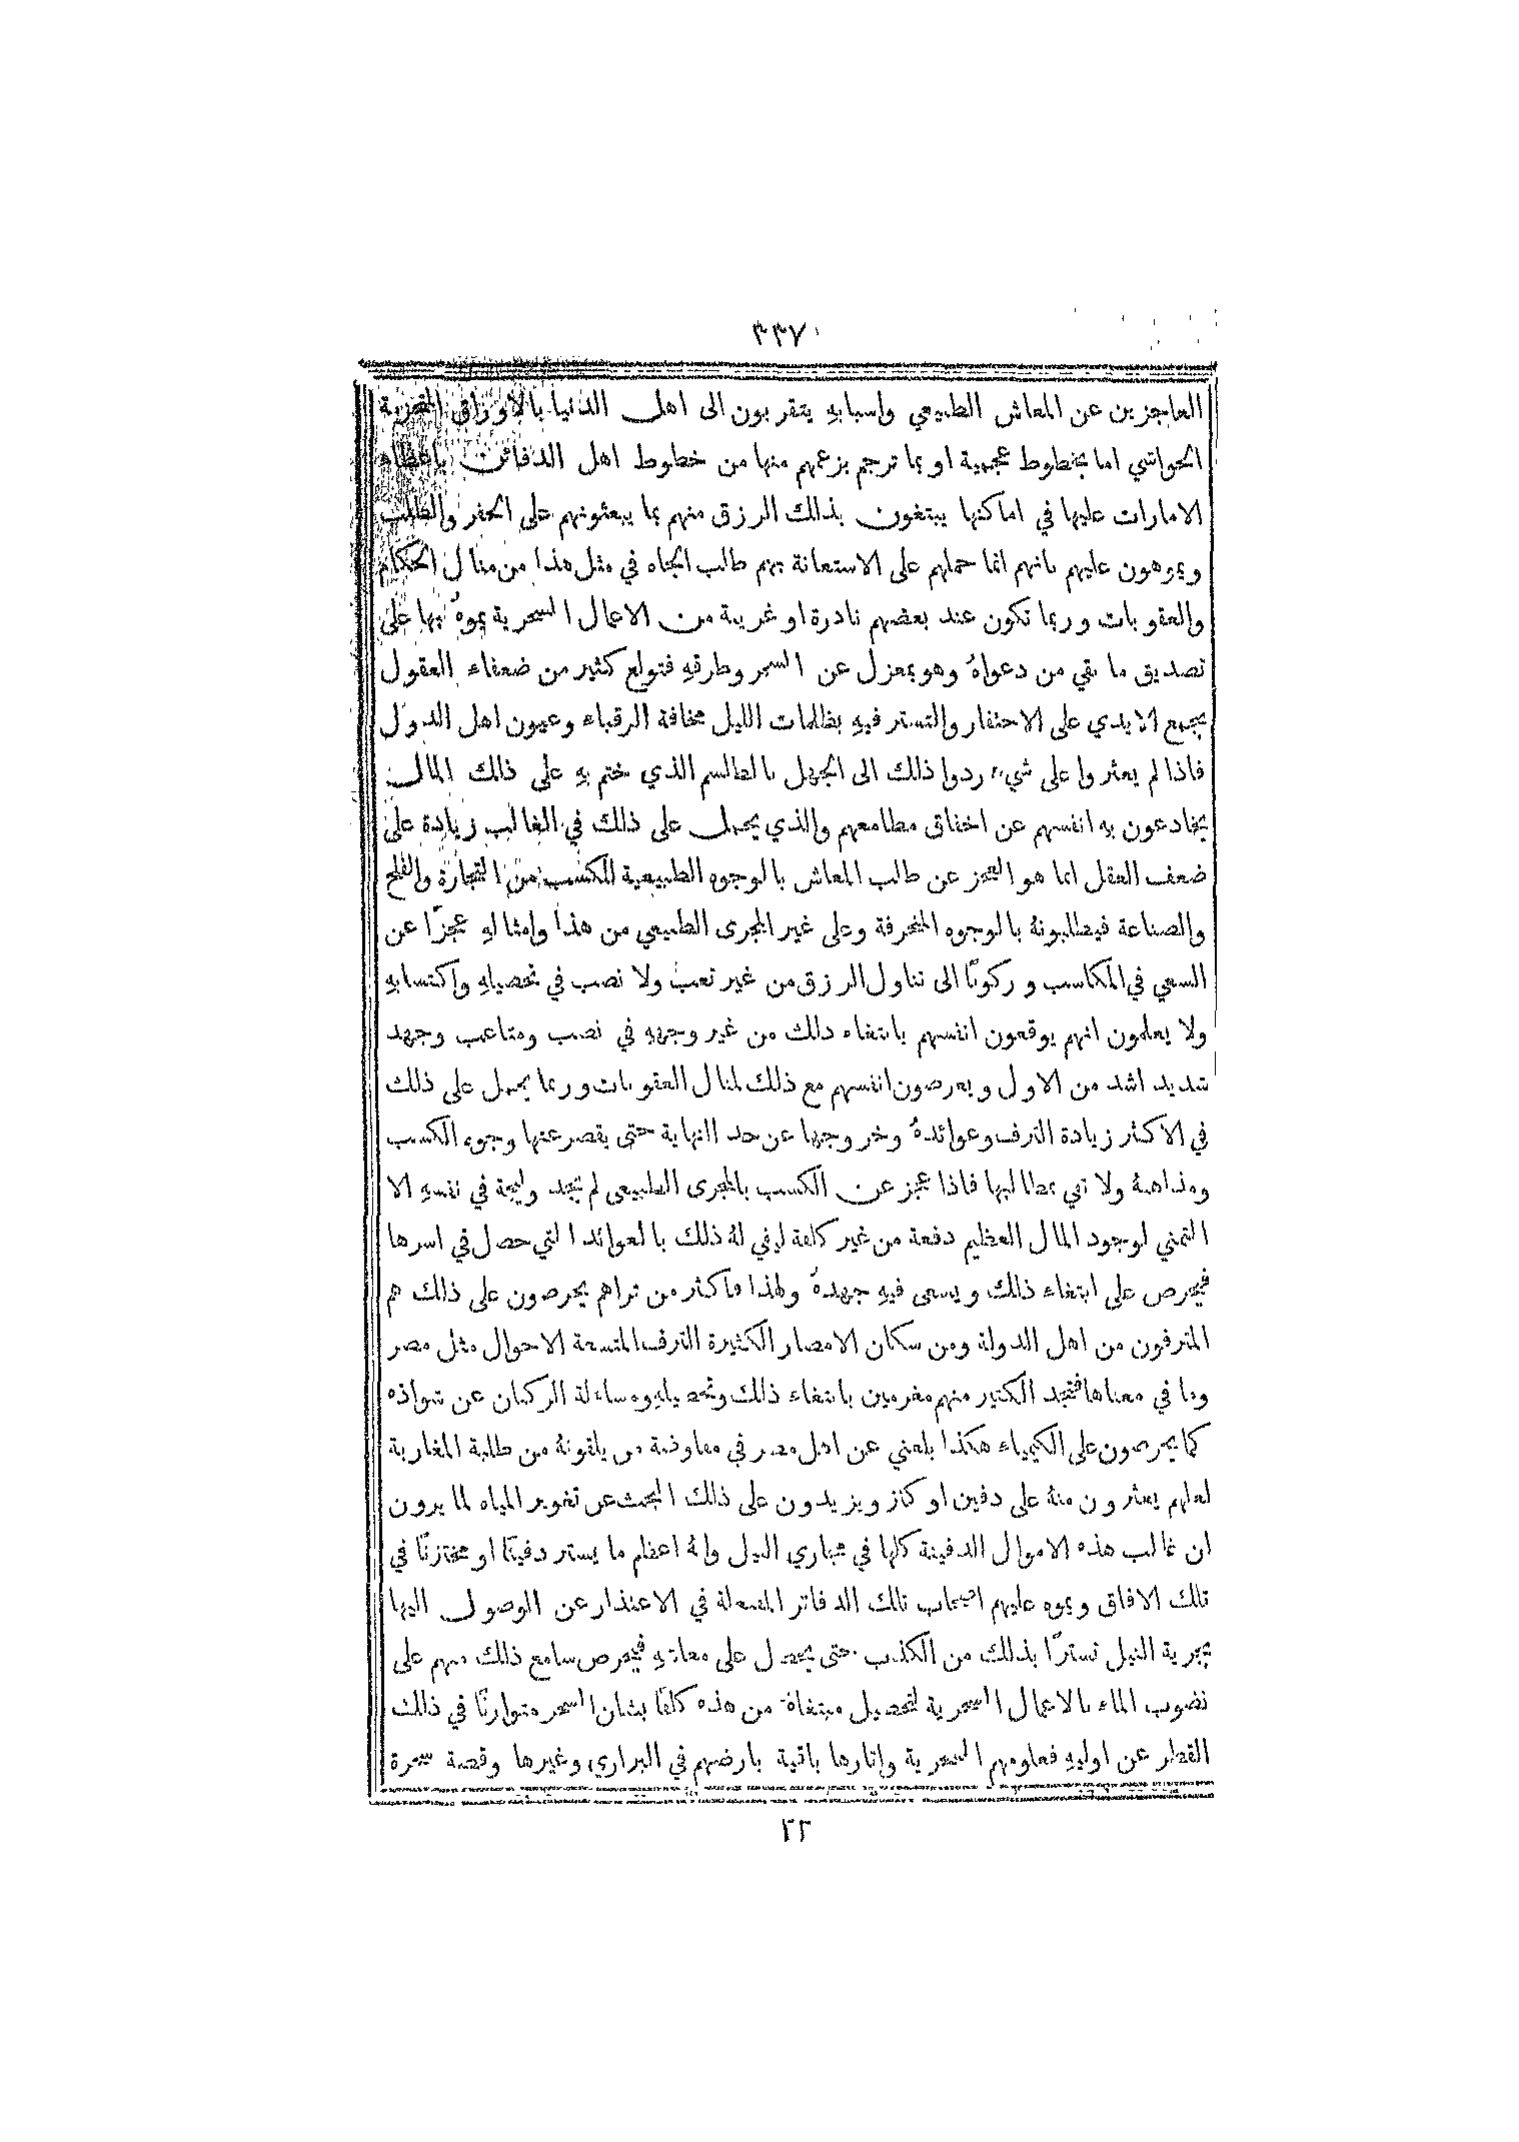 ٣٣٧
العاجزين عن المعاش الطبيعي واسبابهِ يتقربون الى اهل الدنيا بالاوراق المتخرمة
الحواشي اما بخطوط عجمية او بما ترجم بزعمهم منها من خطوط اهل الدفائن باعطاء
الامارات عليها في اماكنها يبتغون بذلك الرزق منهم بما يبعثونهم على الحفر والطلب
ويموهون عليهم بانهم انما حملهم على الاستعانة بهم طلب الجاه في مثل هذا من منال الحكام
والعقوبات وربما تكون عند بعضهم نادرة او غريبة من الاعمال السحرية يموهُ بها على
تصديق ما بقي من دعواهُ وهو بمعزل عن السحر وطرقهِ فتولع كثير من ضعفاء العقول
بجمع الايدي على الاحتفار والتستر فيهِ بظلمات الليل مخافة الرقباء وعيون اهل الدول
فاذا لم يعثروا على شيء ردوا ذلك الى الجهل بالطلسم الذي ختم بهِ على ذلك المال
يخادعون به انفسهم عن اخفاق مطامعهم والذي يحمل على ذلك في الغالب زيادة على
ضعف العقل انما هو العجز عن طلب المعاش بالوجوه الطبيعية للكسب من التجارة والفلح
والصناعة فيطلبونهُ بالوجوه المنحرفة وعلى غير المجرى الطبيعي من هذا وامثالهِ عجزًا عن
السعي في المكاسب وركونًا الى تناول الرزق من غير تعب ولا نصب في تحصيلهِ واكتسابهِ
ولا يعلمون انهم يوقعون انفسهم بابتغاء ذلك من غير وجههِ في نصب ومتاعب وجهد
شديد اشد من الاول ويعرضون انفسهم مع ذلك لمنال العقوبات وربما يحمل على ذلك
في الاكثر زيادة الترف وعوائدهُ وخروجها عن حد النهاية حتى يقصر عنها وجوه الكسب
ومذاهبهُ ولا تفي بمطالبها فاذا عجز عن الكسب بالمجرى الطبيعي لم يجد وليجة في نفسهِ الا
التمني لوجود المال العظيم دفعة من غير كلفة ليفي لهُ ذلك بالعوائد التي حصل في اسرها
فيحرص على ابتغاء ذلك ويسعى فيهِ جهدهُ ولهذا فاكثر من تراهم يحرصون على ذلك هم
المترفون من اهل الدولة ومن سكان الامصار الكثيرة الترف المتسعة الاحوال مثل مصر
وما في معناها فنجد الكثير منهم مغرمين بابتغاء ذلك وتحصيلهِ ومساءلة الركبان عن شواذه
كما يحرصون على الكيمياء هكذا بلغني عن اهل مصر في مفاوضة من يلقونهُ من طلبة المغاربة
لعلهم يعثرون منهُ على دفين او كنز ويزيدون على ذلك البحث عن تغوير المياه لما يرون
ان غالب هذه الاموال الدفينة كلها في مجاري النيل وانهُ اعظم ما يستر دفينًا او مختزنًا في
تلك الافاق ويموه عليهم اصحاب تلك الدفاتر المفتعلة في الاعتذار عن الوصول اليها
بجرية النيل تسترًا بذلك من الكذب حتى يحصل على معاشهِ فيحرص سامع ذلك منهم على
نضوب الماء بالاعمال السحرية لتحصيل مبتغاهُ من هذه كلفًا بشان السحر متوارثًا في ذلك
القطر عن اوليهِ فعلومهم السحرية واثارها باقية بارضهم في البراري وغيرها وقصة سحرة
٢٢